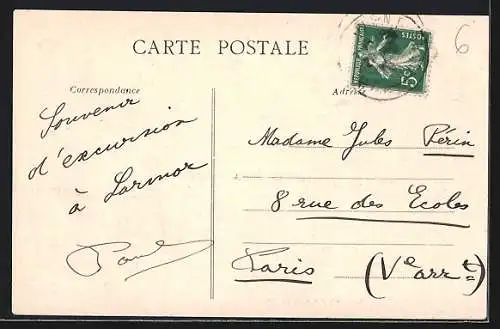 CARTE POSTALE
Correspondance
Souvenir
d'excursion
à Larmor
Paul
Adresse
Madame Jules Périn
8 rue des Ecoles
Paris (Ve arrt)
REPUBLIQUE FRANÇAISE
POSTES
5c
6